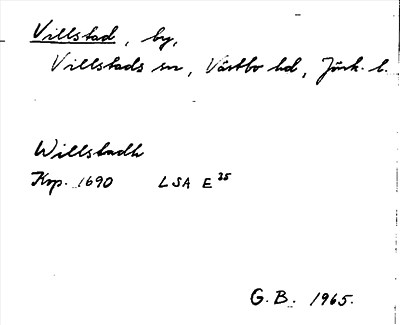 Villstad, by,
Villstads sn, Västbo hd, Jönk. l.
Willstadh
Krp. 1690 LSA E 25
G.B. 1965.